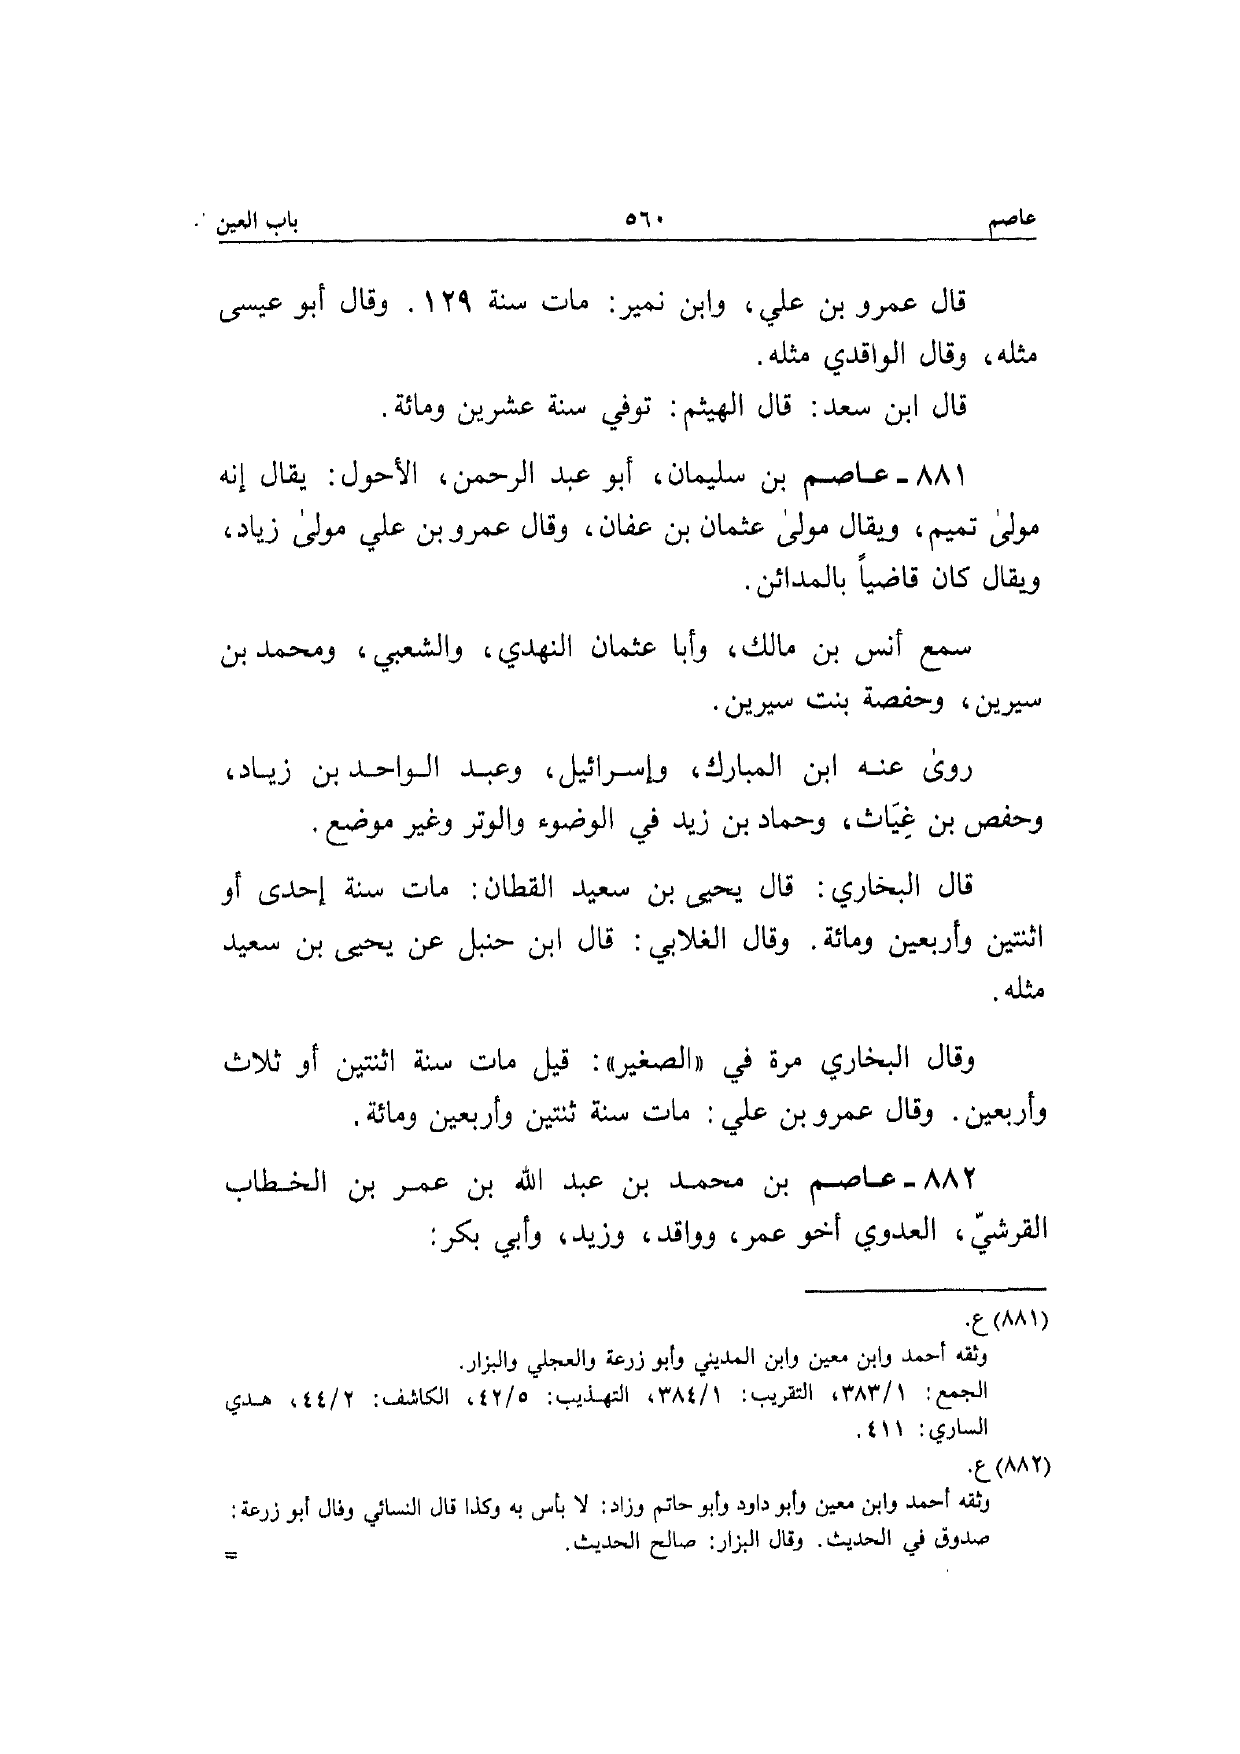 عاصم ٥٦٠ باب العين
قال عمرو بن علي، وابن نمير: مات سنة ١٢٩. وقال أبو عيسى
مثله، وقال الواقدي مثله.
قال ابن سعد: قال الهيثم: توفي سنة عشرين ومائة.
٨٨١ - عاصم بن سليمان، أبو عبد الرحمن، الأحول: يقال إنه
مولىٰ تميم، ويقال مولىٰ عثمان بن عفان، وقال عمرو بن علي مولىٰ زياد،
ويقال كان قاضياً بالمدائن.
سمع أنس بن مالك، وأبا عثمان النهدي، والشعبي، ومحمد بن
سيرين، وحفصة بنت سيرين.
روىٰ عنه ابن المبارك، وإسرائيل، وعبد الواحد بن زياد،
وحفص بن غِيَاث، وحماد بن زيد في الوضوء والوتر وغير موضع.
قال البخاري: قال يحيى بن سعيد القطان: مات سنة إحدى أو
اثنتين وأربعين ومائة. وقال الغلابي: قال ابن حنبل عن يحيى بن سعيد
مثله.
وقال البخاري مرة في «الصغير»: قيل مات سنة اثنتين أو ثلاث
وأربعين. وقال عمرو بن علي: مات سنة ثنتين وأربعين ومائة.
٨٨٢ - عاصم بن محمد بن عبد الله بن عمر بن الخطاب
القرشيّ، العدوي أخو عمر، وواقد، وزيد، وأبي بكر:
(٨٨١) ع.
وثقه أحمد وابن معين وابن المديني وأبو زرعة والعجلي والبزار.
الجمع: ٣٨٣/١، التقريب: ٣٨٤/١، التهذيب: ٤٢/٥، الكاشف: ٤٤/٢، هدي
الساري: ٤١١.
(٨٨٢) ع.
وثقه أحمد وابن معين وأبو داود وأبو حاتم وزاد: لا بأس به وكذا قال النسائي وقال أبو زرعة:
صدوق في الحديث. وقال البزار: صالح الحديث. =